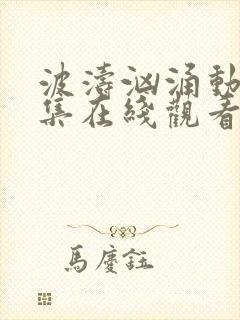 波濤洶涌動
集在綫觀看
馬慶鈺